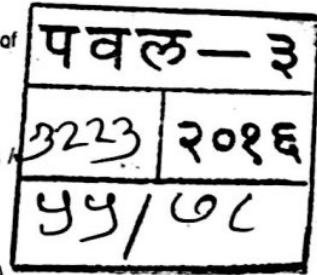 of
पवल - ३
3223 २०१६
५५/७८